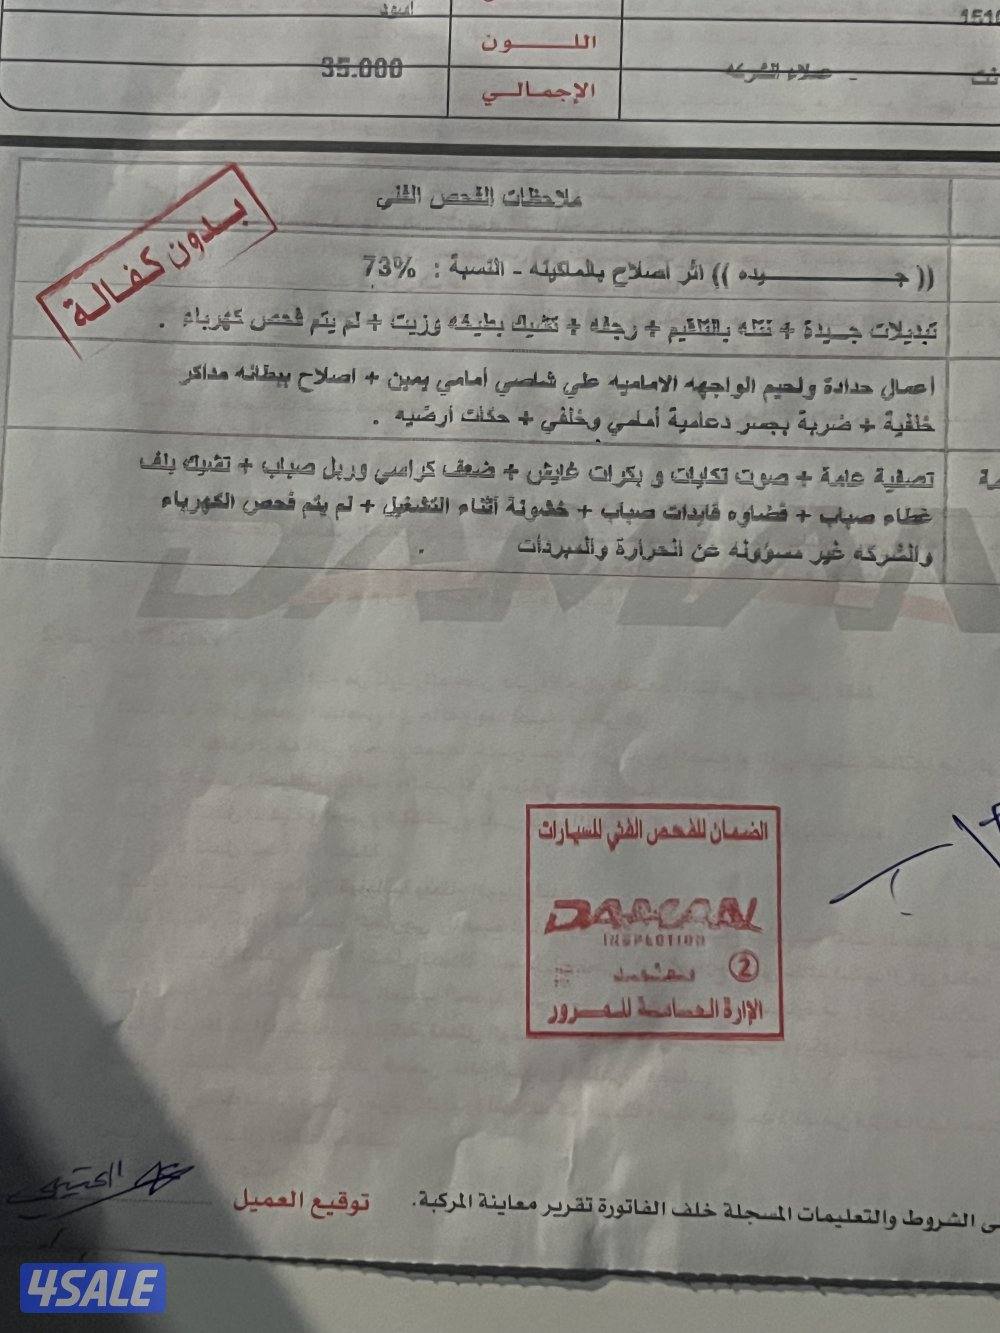 أسود
1510
اللـــــون
35.000
الإجمـالـــي
عملاء الشركه -
ملاحظات الفحص الفني
بـدون كـفـالـة
(( جـــــــــــيده )) اثر اصلاح بالماكينه - النسبة : 73%
تبديلات جـــيدة + نتله بالتقيم + رجفه + تفتيك بطيفه وزيت + لم يتم فحص كهرباء .
أعمال حدادة ولحيم الواجهه الاماميه علي شاصي أمامي يمين + اصلاح ببطانه مداكر
خلفية + ضربة بجسر دعامية أمامي وخلفي + حكات أرضيه .
تصفية عامة + صوت تكايات و بكرات قايش + ضعف كراسي وربل صباب + تفتيك بلف
غطاء صباب + فضاوه قايدات صباب + خشونة أثناء التشغيل + لم يتم فحص الكهرباء
والشركه غير مسؤوله عن الحرارة والمبردات .
الضمان للفحص الفني للسيارات
DAMAAN
INSPECTION
معتمد ②
الإدارة العـامـة للمـرور
ى الشروط والتعليمات المسجلة خلف الفاتورة تقرير معاينة المركبة.
توقيع العميل
4SALE